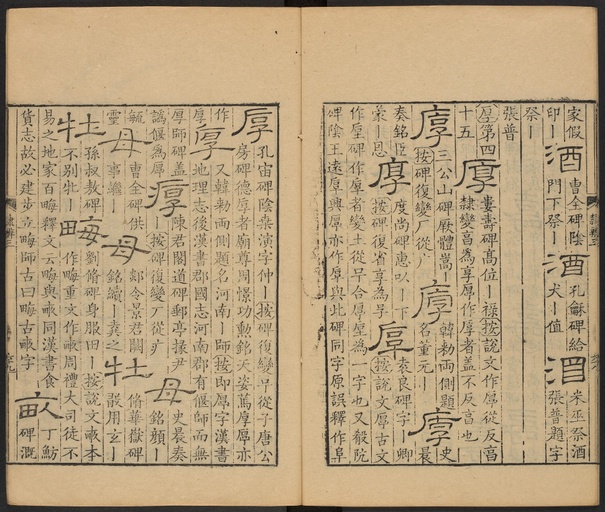 家假
印丨酒曹全碑陰門下祭丨酒孔龢碑給犬丨值酒米巫祭酒張普題字
祭丨
張普
厚第四十五厚婁壽碑高位丨祿按說文作厚從反亯隸變亯為享厚作厚者蓋不反亯也
厚三公山碑厥體嵩丨按碑復變厂從广厚韓勑兩側題名董元丨厚史晨
奏銘臣彖丨恩厚度尚碑惠以丨下按碑復省享為孚厚袁良碑字丨卿按說文厚古文
作垕碑作厚者變土從早合厚垕為一字也又殽阮
碑陰王遠厚與厚亦作厚與此碑同字原誤釋作阜
厚孔宙碑陰桒演字仲丨按碑復變早從子唐公房碑德厚者廟尊周憬功勳銘天姿萬厚厚亦
作厚又韓勑兩側題名河南丨師按即厚字漢書地理志後漢書郡國志河南郡有偃師而無
厚師碑蓋譌偃為厚厚陳君閣道碑郵亭掾尹丨按碑復變厂從疒母史晨奏銘顏丨
毓丨靈母曹全碑供事繼丨母郙令景君闕銘續丨袁之牡脩華嶽碑殽用玄丨
牡孫叔敖碑不別牡丨畮劉脩碑身服田丨按說文畮本作畮重文作畝周禮大司徒不
易之地家百畮釋文云畮與畝同漢書食畝丁魴碑溉
貨志故必建步立畮師古曰畮古畝字